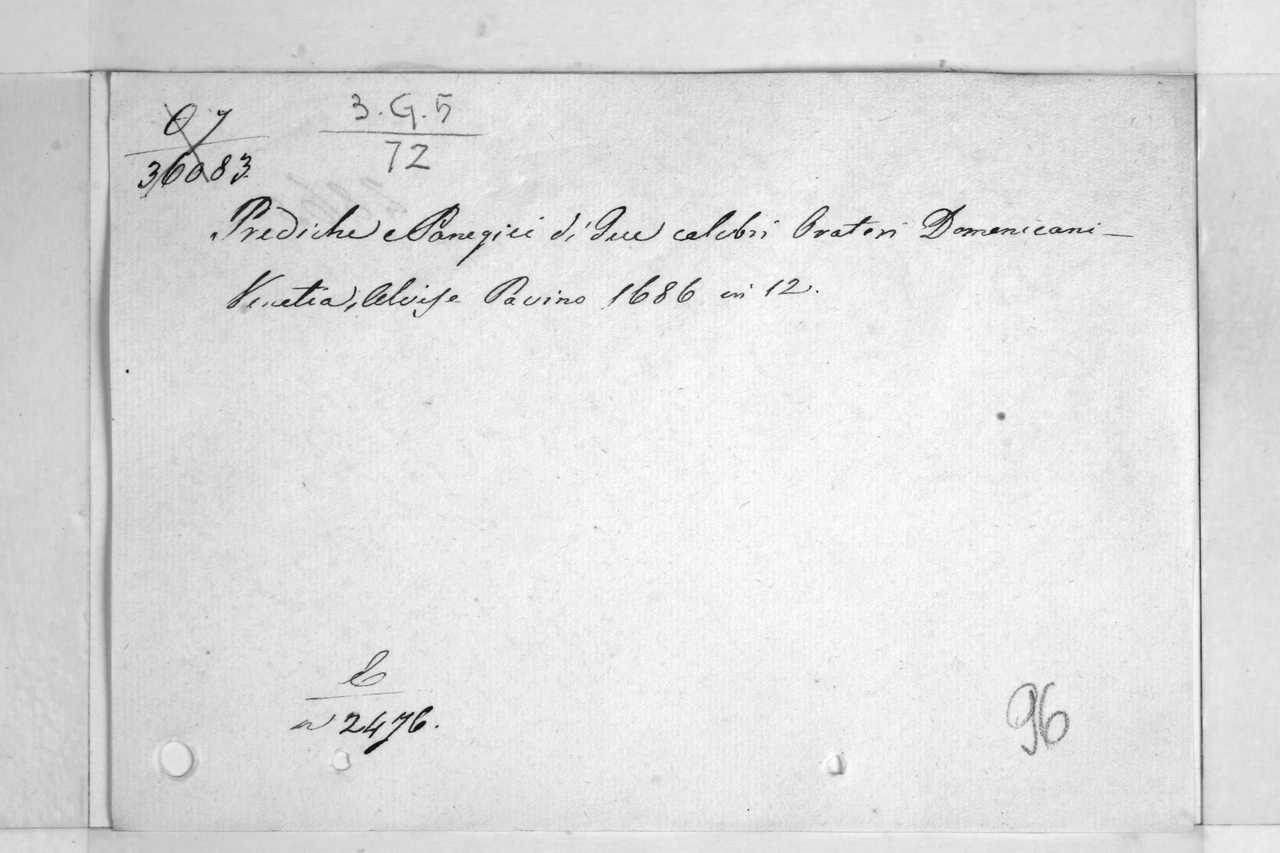 O 7
36083
3. G. 5
72
Prediche e Panegici di due celebri Oratori Domenicani —
Venetia, Alvise Pavino 1686 in 12.
n 2476.
96